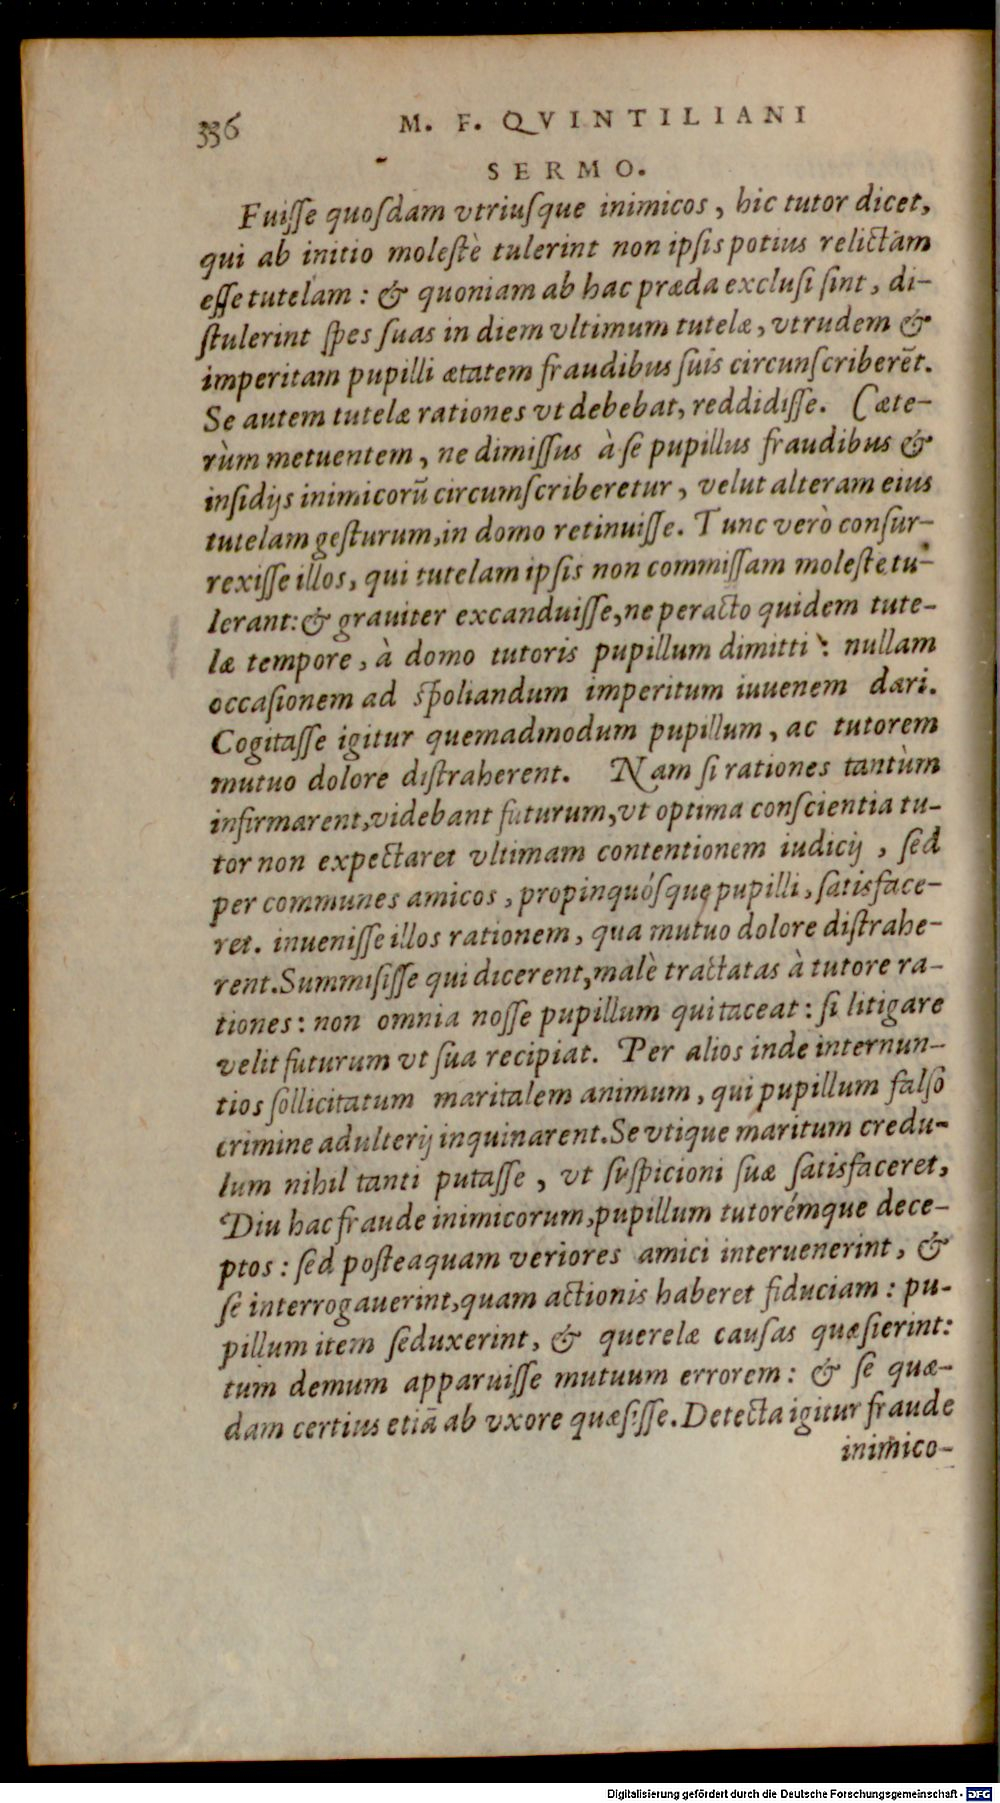 336 M. F. QVINTILIANI
SERMO.
Fuiſſe quoſdam vtriuſque inimicos, hic tutor dicet,
qui ab initio moleſtè tulerint non ipſis potius relictam
eſſe tutelam: & quoniam ab hac præda excluſi ſint, di-
ſtulerint ſpes ſuas in diem vltimum tutelæ, vt rudem &
imperitam pupilli ætatem fraudibus ſuis circunſcriberēt.
Se autem tutelæ rationes vt debebat, reddidiſſe. Cæte-
rùm metuentem, ne dimiſſus à ſe pupillus fraudibus &
inſidijs inimicorū circumſcriberetur, velut alteram eius
tutelam geſturum, in domo retinuiſſe. Tunc verò conſur-
rexiſſe illos, qui tutelam ipſis non commiſſam moleſte tu-
lerant: & grauiter excanduiſſe, ne peracto quidem tute-
læ tempore, à domo tutoris pupillum dimitti: nullam
occaſionem ad ſpoliandum imperitum iuuenem dari.
Cogitaſſe igitur quemadmodum pupillum, ac tutorem
mutuo dolore diſtraherent. Nam ſi rationes tantùm
infirmarent, videbant futurum, vt optima conſcientia tu-
tor non expectaret vltimam contentionem iudicij, ſed
per communes amicos, propinquóſque pupilli, ſatisface-
ret. inueniſſe illos rationem, qua mutuo dolore diſtrahe-
rent. Summiſiſſe qui dicerent, malè tractatas à tutore ra-
tiones: non omnia noſſe pupillum qui taceat: ſi litigare
velit futurum vt ſua recipiat. Per alios inde internun-
tios ſollicitatum maritalem animum, qui pupillum falſo
crimine adulterij inquinarent. Se vtique maritum credu-
lum nihil tanti putaſſe, vt ſuſpicioni ſuæ ſatisfaceret,
Diu hac fraude inimicorum, pupillum tutorémque dece-
ptos: ſed poſteaquam veriores amici interuenerint, &
ſe interrogauerint, quam actionis haberet fiduciam: pu-
pillum item ſeduxerint, & querelæ cauſas quæſierint:
tum demum apparuiſſe mutuum errorem: & ſe quæ-
dam certius etiā ab vxore quæſiſſe. Detecta igitur fraude
inimico-
Digitalisierung gefördert durch die Deutsche Forschungsgemeinschaft - DFG